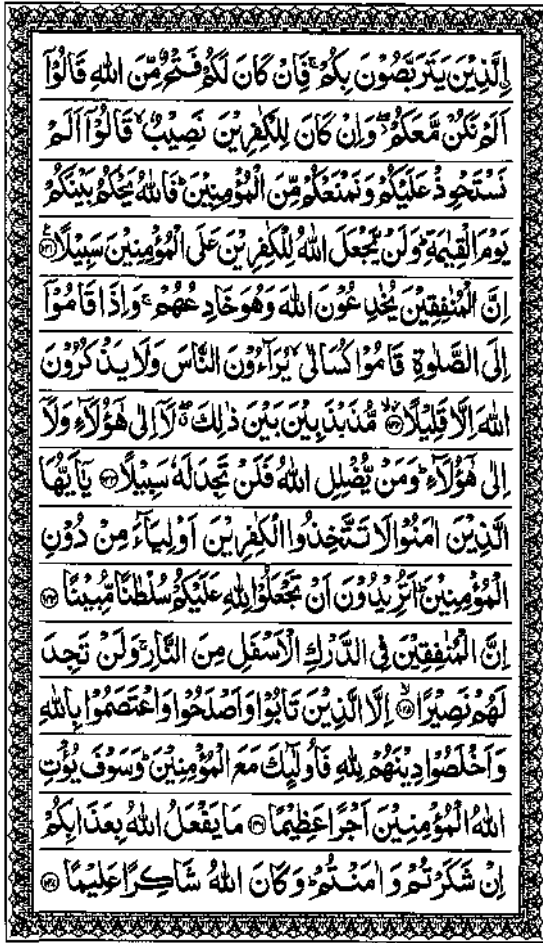 اِۨلَّذِيْنَ يَتَرَبَّصُوْنَ بِكُمْ ۚ فَاِنْ كَانَ لَكُمْ فَتْحٌ مِّنَ اللّٰهِ قَالُوْۤا
اَلَمْ نَكُنْ مَّعَكُمْ ۖ وَاِنْ كَانَ لِلْكٰفِرِيْنَ نَصِيْبٌ ۙ قَالُوْۤا اَلَمْ
نَسْتَحْوِذْ عَلَيْكُمْ وَنَمْنَعْكُمْ مِّنَ الْمُؤْمِنِيْنَ ؕ فَاللّٰهُ يَحْكُمُ بَيْنَكُمْ
يَوْمَ الْقِيٰمَةِ ؕ وَلَنْ يَّجْعَلَ اللّٰهُ لِلْكٰفِرِيْنَ عَلَى الْمُؤْمِنِيْنَ سَبِيْلًا ۝۱۴۱
اِنَّ الْمُنٰفِقِيْنَ يُخٰدِعُوْنَ اللّٰهَ وَهُوَ خَادِعُهُمْ ۚ وَاِذَا قَامُوْۤا
اِلَى الصَّلٰوةِ قَامُوْا كُسَالٰى ۙ يُرَآءُوْنَ النَّاسَ وَلَا يَذْكُرُوْنَ
اللّٰهَ اِلَّا قَلِيْلًا ۝۱۴۲ مُّذَبْذَبِيْنَ بَيْنَ ذٰلِكَ ۖ لَاۤ اِلٰى هٰۤؤُلَآءِ وَلَاۤ
اِلٰى هٰۤؤُلَآءِ ؕ وَمَنْ يُّضْلِلِ اللّٰهُ فَلَنْ تَجِدَ لَهٗ سَبِيْلًا ۝۱۴۳ يٰۤاَيُّهَا
الَّذِيْنَ اٰمَنُوْا لَا تَتَّخِذُوا الْكٰفِرِيْنَ اَوْلِيَآءَ مِنْ دُوْنِ
الْمُؤْمِنِيْنَ ؕ اَتُرِيْدُوْنَ اَنْ تَجْعَلُوْا لِلّٰهِ عَلَيْكُمْ سُلْطٰنًا مُّبِيْنًا ۝۱۴۴
اِنَّ الْمُنٰفِقِيْنَ فِى الدَّرْكِ الْاَسْفَلِ مِنَ النَّارِ ۚ وَلَنْ تَجِدَ
لَهُمْ نَصِيْرًا ۝۱۴۵ اِلَّا الَّذِيْنَ تَابُوْا وَاَصْلَحُوْا وَاعْتَصَمُوْا بِاللّٰهِ
وَاَخْلَصُوْا دِيْنَهُمْ لِلّٰهِ فَاُولٰٓئِكَ مَعَ الْمُؤْمِنِيْنَ ؕ وَسَوْفَ يُؤْتِ
اللّٰهُ الْمُؤْمِنِيْنَ اَجْرًا عَظِيْمًا ۝۱۴۶ مَا يَفْعَلُ اللّٰهُ بِعَذَابِكُمْ
اِنْ شَكَرْتُمْ وَاٰمَنْتُمْ ؕ وَكَانَ اللّٰهُ شَاكِرًا عَلِيْمًا ۝۱۴۷